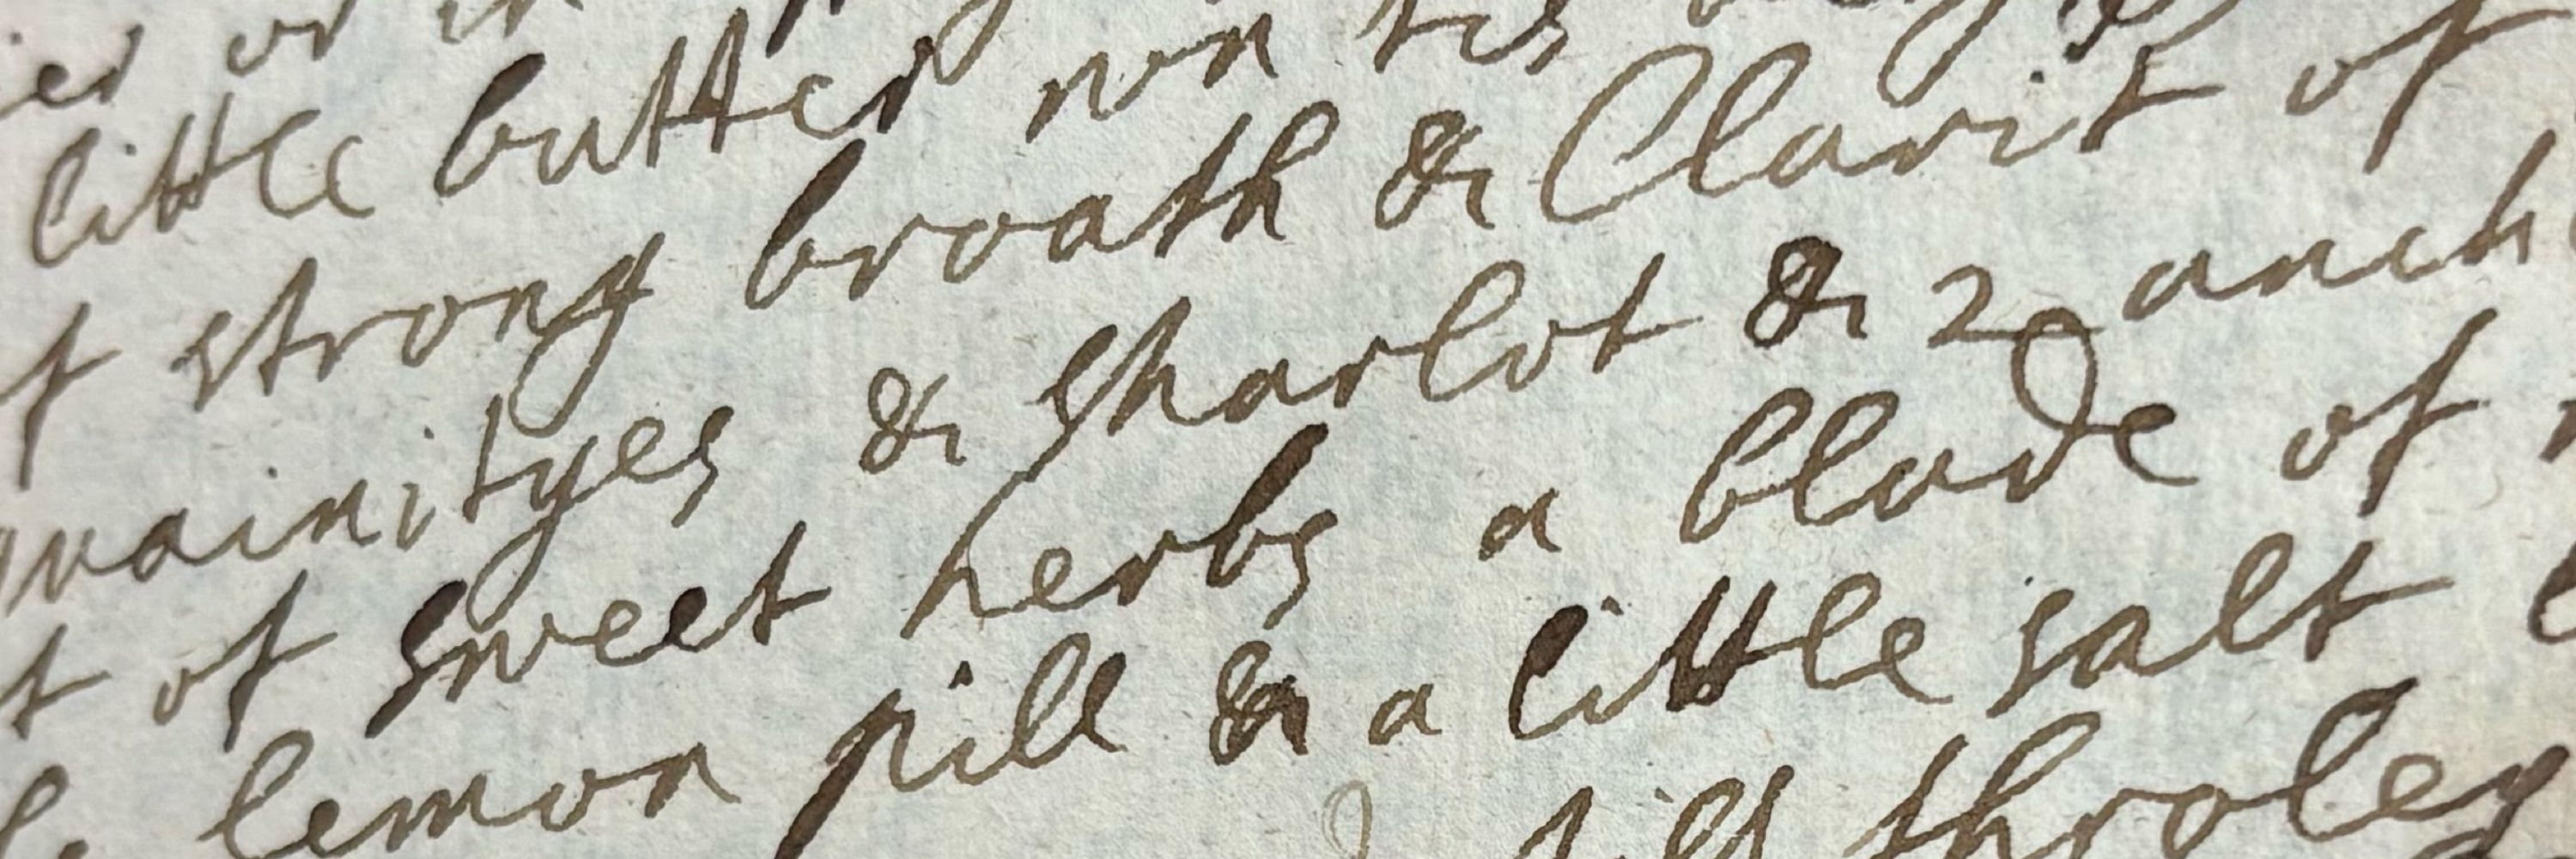 or in
little butter wn tis
strong broath & Clarit of
quainityes & sharlot & 2 anch
t of sweet herbs a blade of
lemon pill & a little salt
till throley